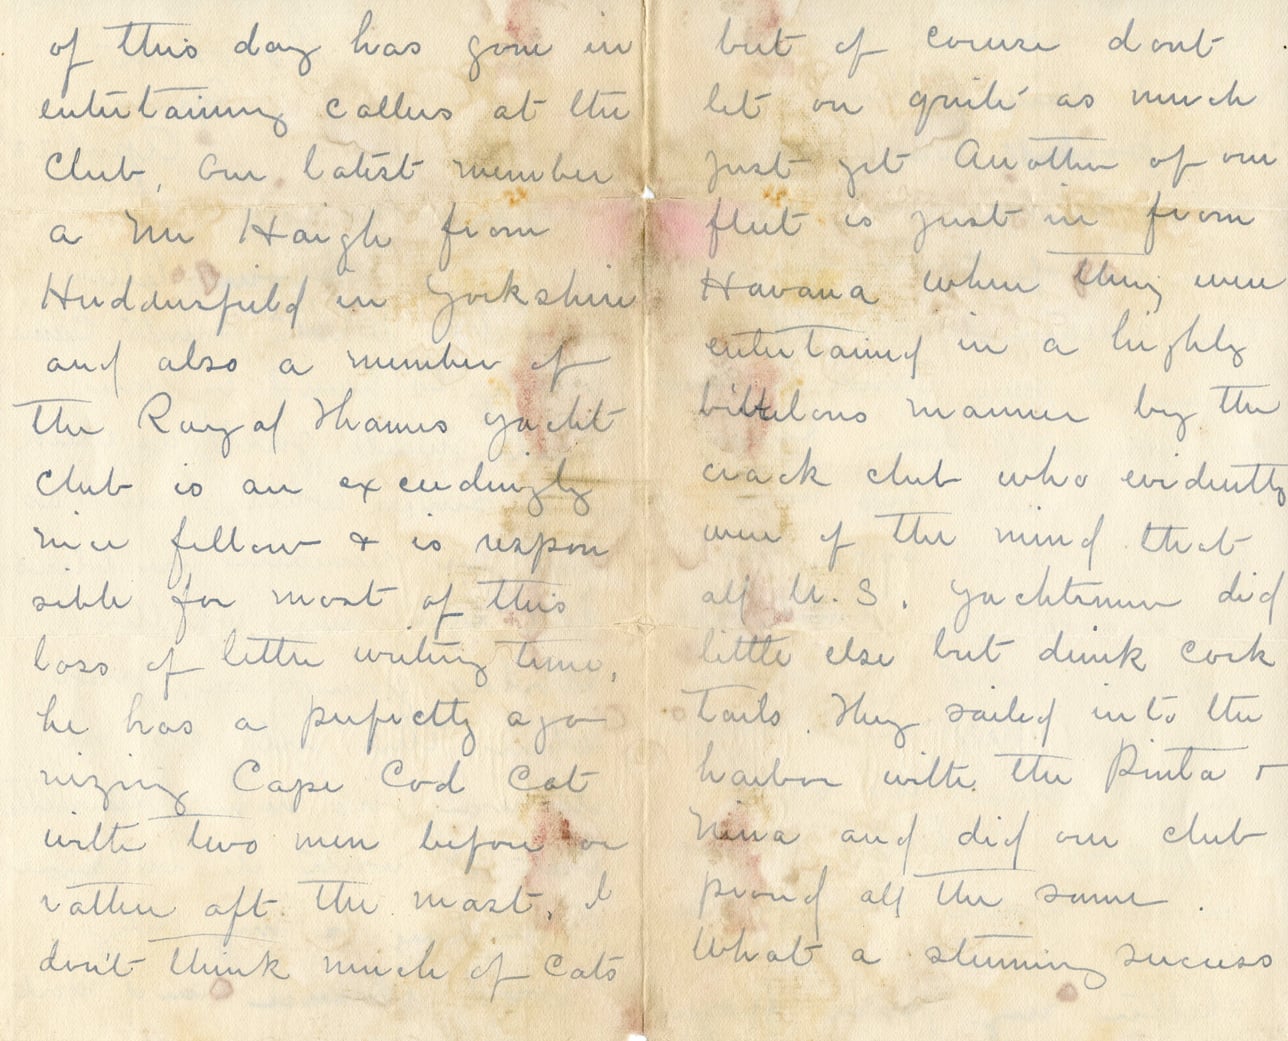 of this day has gone in
entertaining callers at the
Club, our latest member
a Mr Haigh from
Huddersfield in Yorkshire
and also a member of
the Royal Thames yacht
club is an exceedingly
nice fellow & is respon
sible for most of this
loss of letter writing time,
he has a perfectly ago
nizing Cape Cod Cat
with two men before or
rather aft the mast. I
don't think much of Cats
but of course dont
let on quite as much
just yet Another of our
fleet is just in from
Havana where they were
entertained in a highly
bibulous manner by the
crack club who evidently
were of the mind that
all U.S. yachtsmen did
little else but drink cock
tails They sailed into the
harbor with the Pinta &
Nina and did our club
proud all the same.
What a stunning success